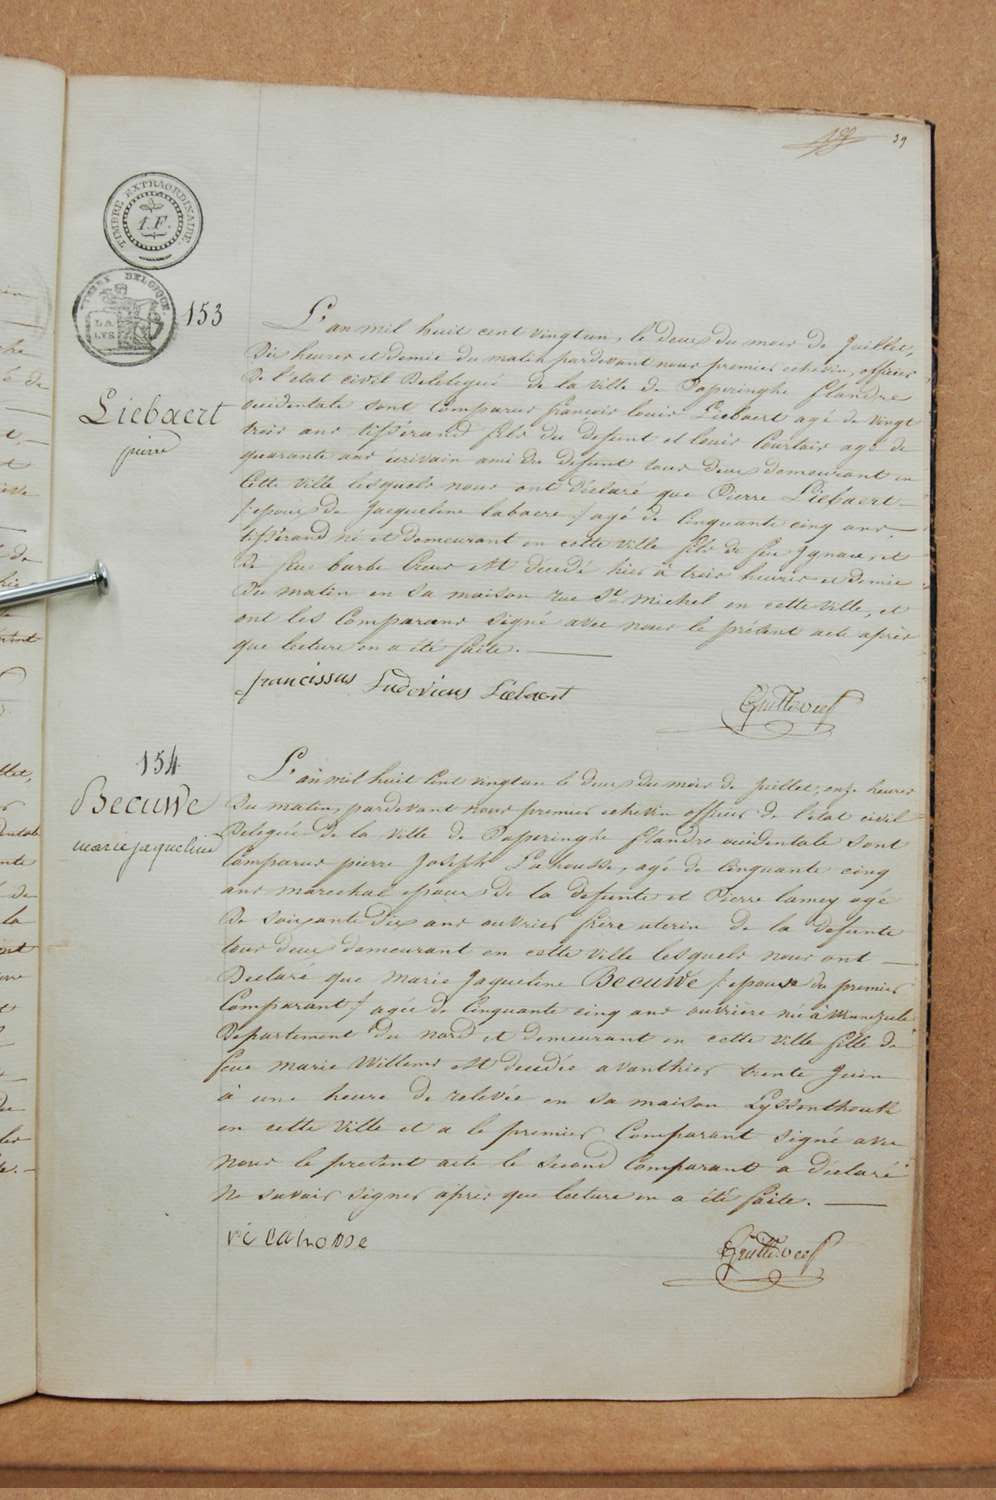 39
TIMBRE EXTRAORDINAIRE
1.F.
BELGIQUE
LA
LYS
153
Liebaert
pierre
L'an mil huit cent vingtun, le deux du mois de Juillet,
Dix heures et demie du matin pardevant nous premier echevin, officier
De l'etat civil Delelegué de la ville de Poperinghe flandre
occidentale sont comparus françois louis Liebaert agé de vingt
trois ans tissérand fils du defunt et louis Courtois agé de
quarante ans écrivain ami du defunt tous deux demeurant en
Cette ville lesquels nous ont déclaré que Pierre Liebaert
/:epoux de Jacqueline Labaere:/ agé de Cinquante cinq ans
tissérand né et demeurant en cette ville fils de feu Ignace, et
de feu barbe est décédé hier à trois heures et demie
Du matin en sa maison rue St. Michel en cette ville, et
ont les Comparans signé avec nous le présent acte après
que lecture en a été faite.
franciscus Ludovicus Liebaert
154
Becuwe
marie jaqueline
L'an mil huit Cent vingtun le deux du mois de juillet, onze heures
Du matin, pardevant nous premier echevin officier de l'etat civil
Delegué de la ville de Poperinghe flandre occidentale sont
Comparus pierre Joseph Lahousse, agé de Cinquante cinq
ans marechal epoux de la defunte et Pierre lamey agé
De soixante Dix ans ouvrier frère uterin de la defunte
tous deux demeurant en cette ville lesquels nous ont
Declaré que Marie Jaqueline Becuwe /:epouse du premier
Comparant:/ agée de Cinquante cinq ans ouvrière né à
Departement du Nord et demeurant en cette ville fille de
feue Marie Willems est decedée avanthier trente Juin
à une heure de relevée en sa maison Lyssenthouck
en cette ville et a le premier Comparant signé avec
Nous le présent acte le second Comparant a déclaré
Ne savoir signer après que lecture en a été faite.